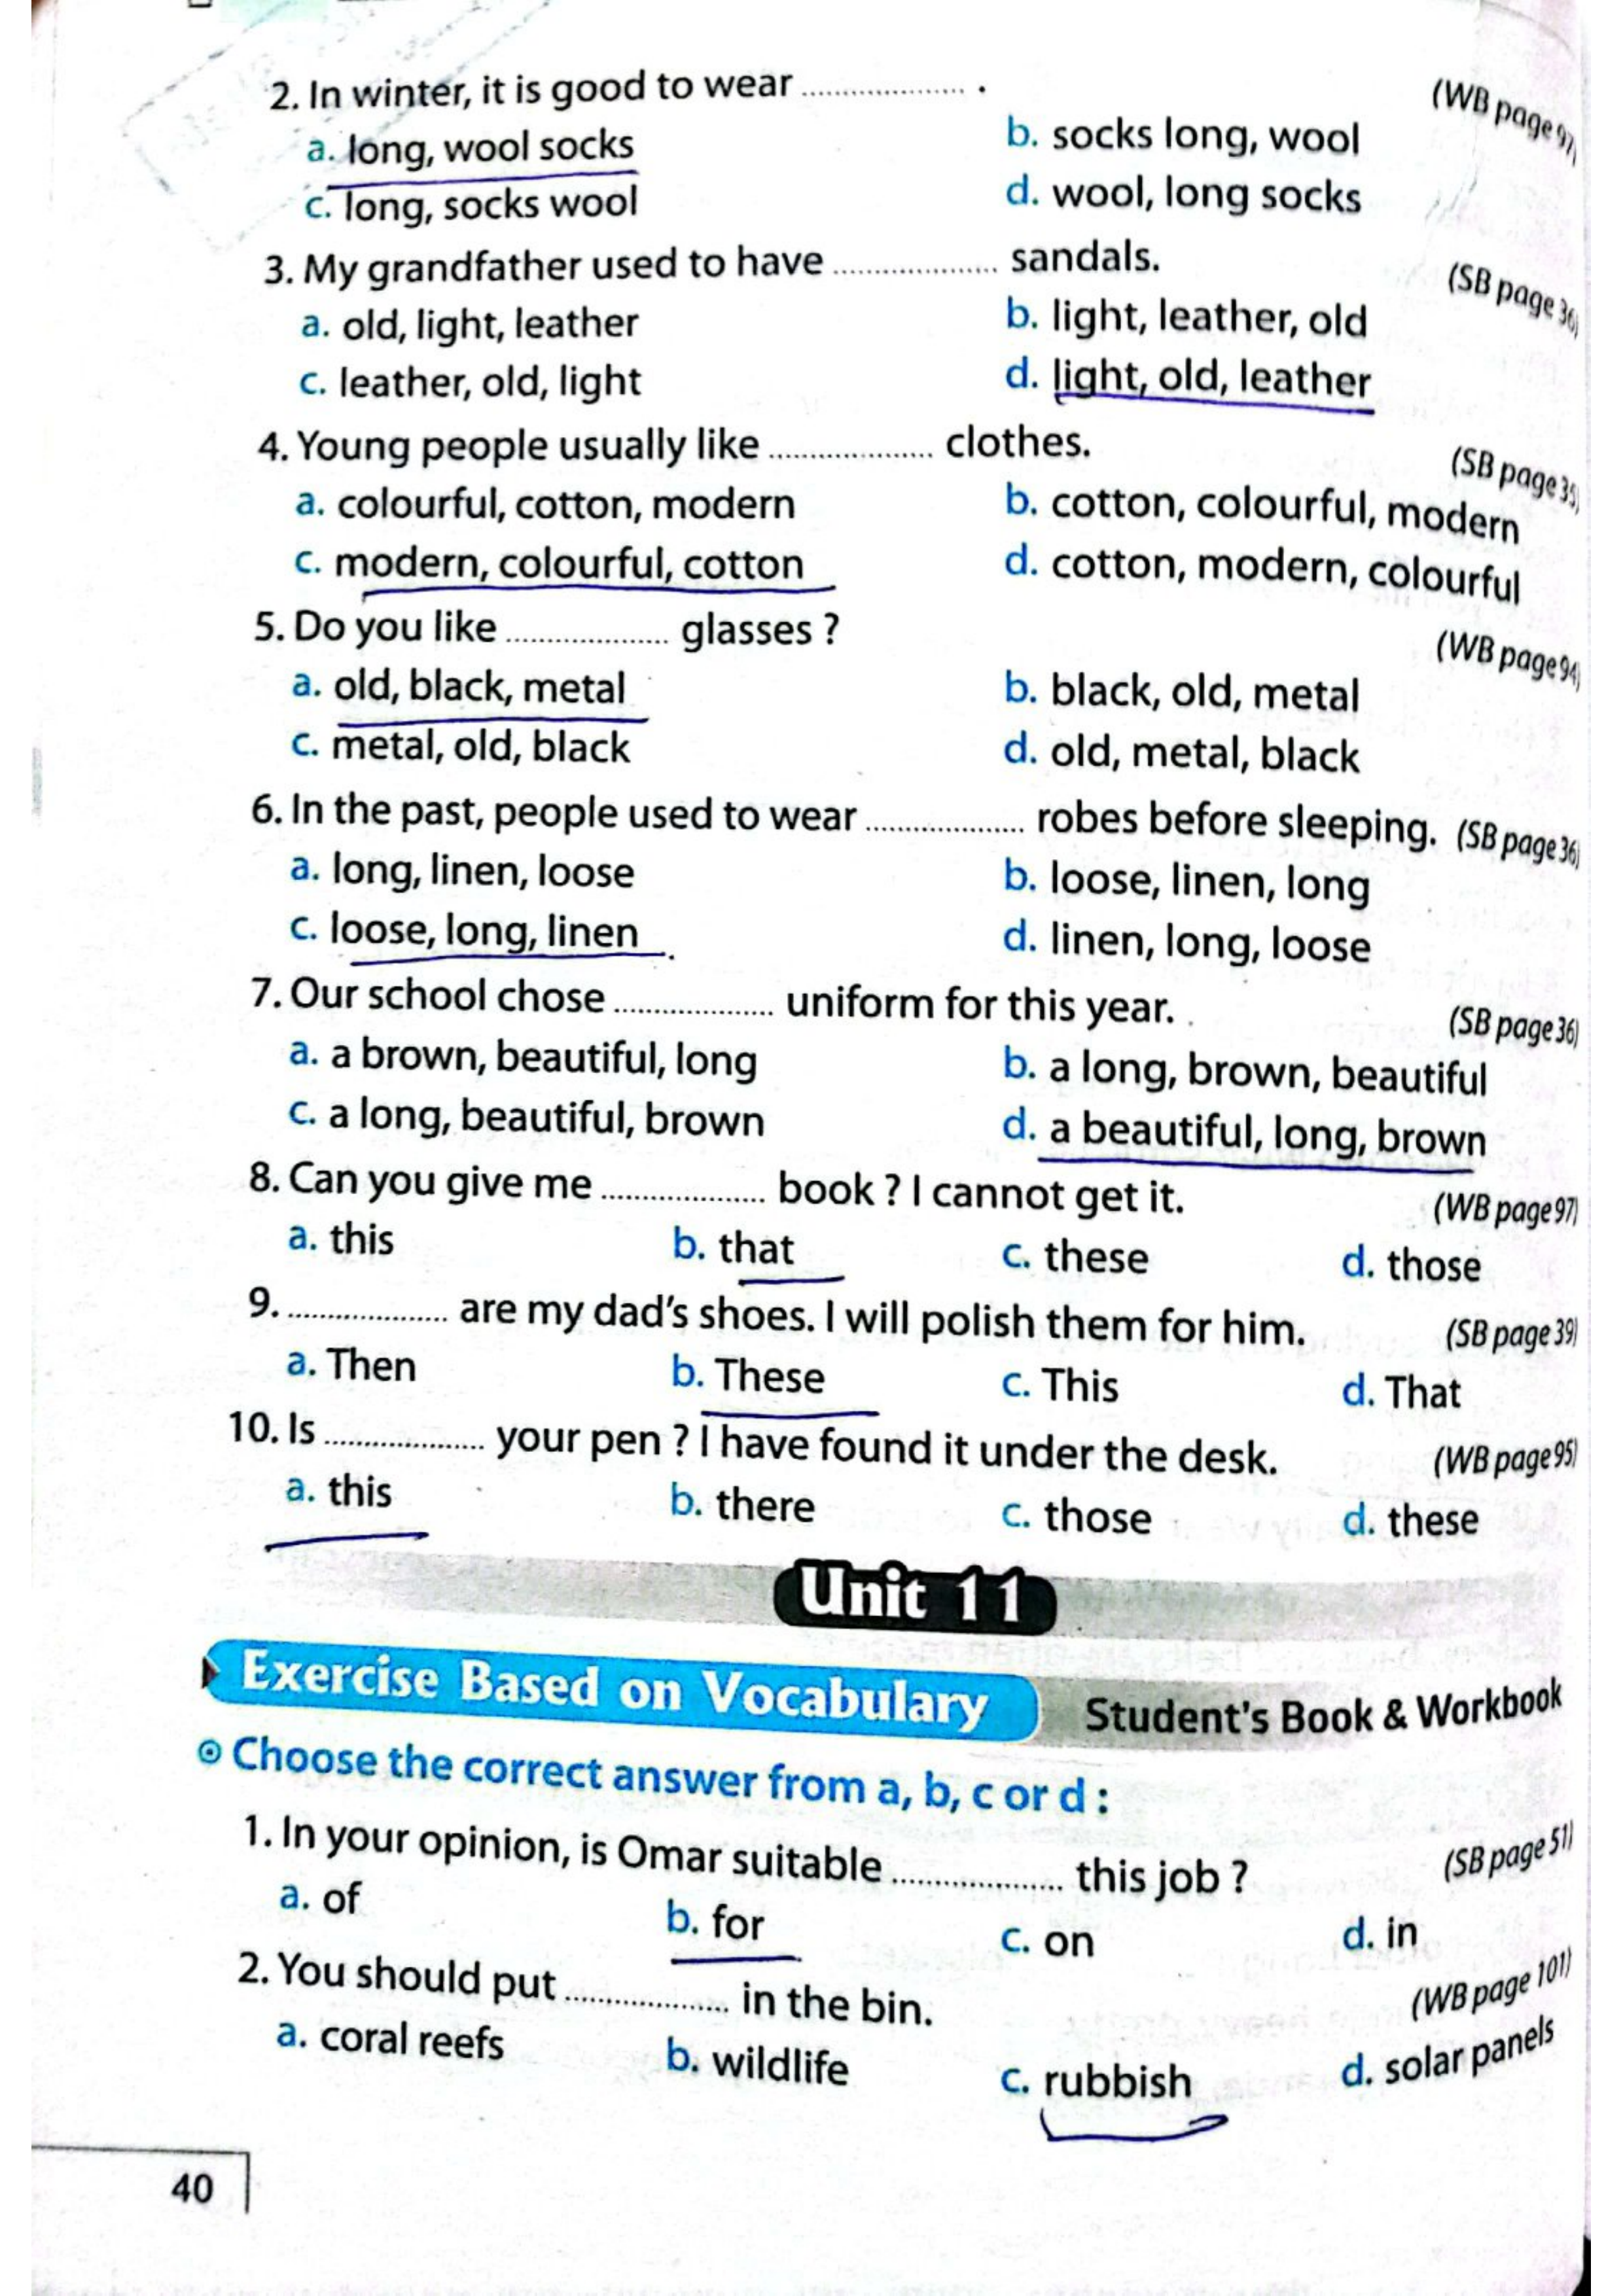 2. In winter, it is good to wear .................. . (WB page 97)
a. long, wool socks b. socks long, wool
c. long, socks wool d. wool, long socks
3. My grandfather used to have .................. sandals. (SB page 36)
a. old, light, leather b. light, leather, old
c. leather, old, light d. light, old, leather
4. Young people usually like .................. clothes. (SB page 35)
a. colourful, cotton, modern b. cotton, colourful, modern
c. modern, colourful, cotton d. cotton, modern, colourful
5. Do you like .................. glasses ? (WB page 94)
a. old, black, metal b. black, old, metal
c. metal, old, black d. old, metal, black
6. In the past, people used to wear .................. robes before sleeping. (SB page 36)
a. long, linen, loose b. loose, linen, long
c. loose, long, linen d. linen, long, loose
7. Our school chose .................. uniform for this year. (SB page 36)
a. a brown, beautiful, long b. a long, brown, beautiful
c. a long, beautiful, brown d. a beautiful, long, brown
8. Can you give me .................. book ? I cannot get it. (WB page 97)
a. this b. that c. these d. those
9. .................. are my dad's shoes. I will polish them for him. (SB page 39)
a. Then b. These c. This d. That
10. Is .................. your pen ? I have found it under the desk. (WB page 95)
a. this b. there c. those d. these
Unit 11
Exercise Based on Vocabulary Student's Book & Workbook
Choose the correct answer from a, b, c or d :
1. In your opinion, is Omar suitable .................. this job ? (SB page 51)
a. of b. for c. on d. in
2. You should put .................. in the bin. (WB page 101)
a. coral reefs b. wildlife c. rubbish d. solar panels
40